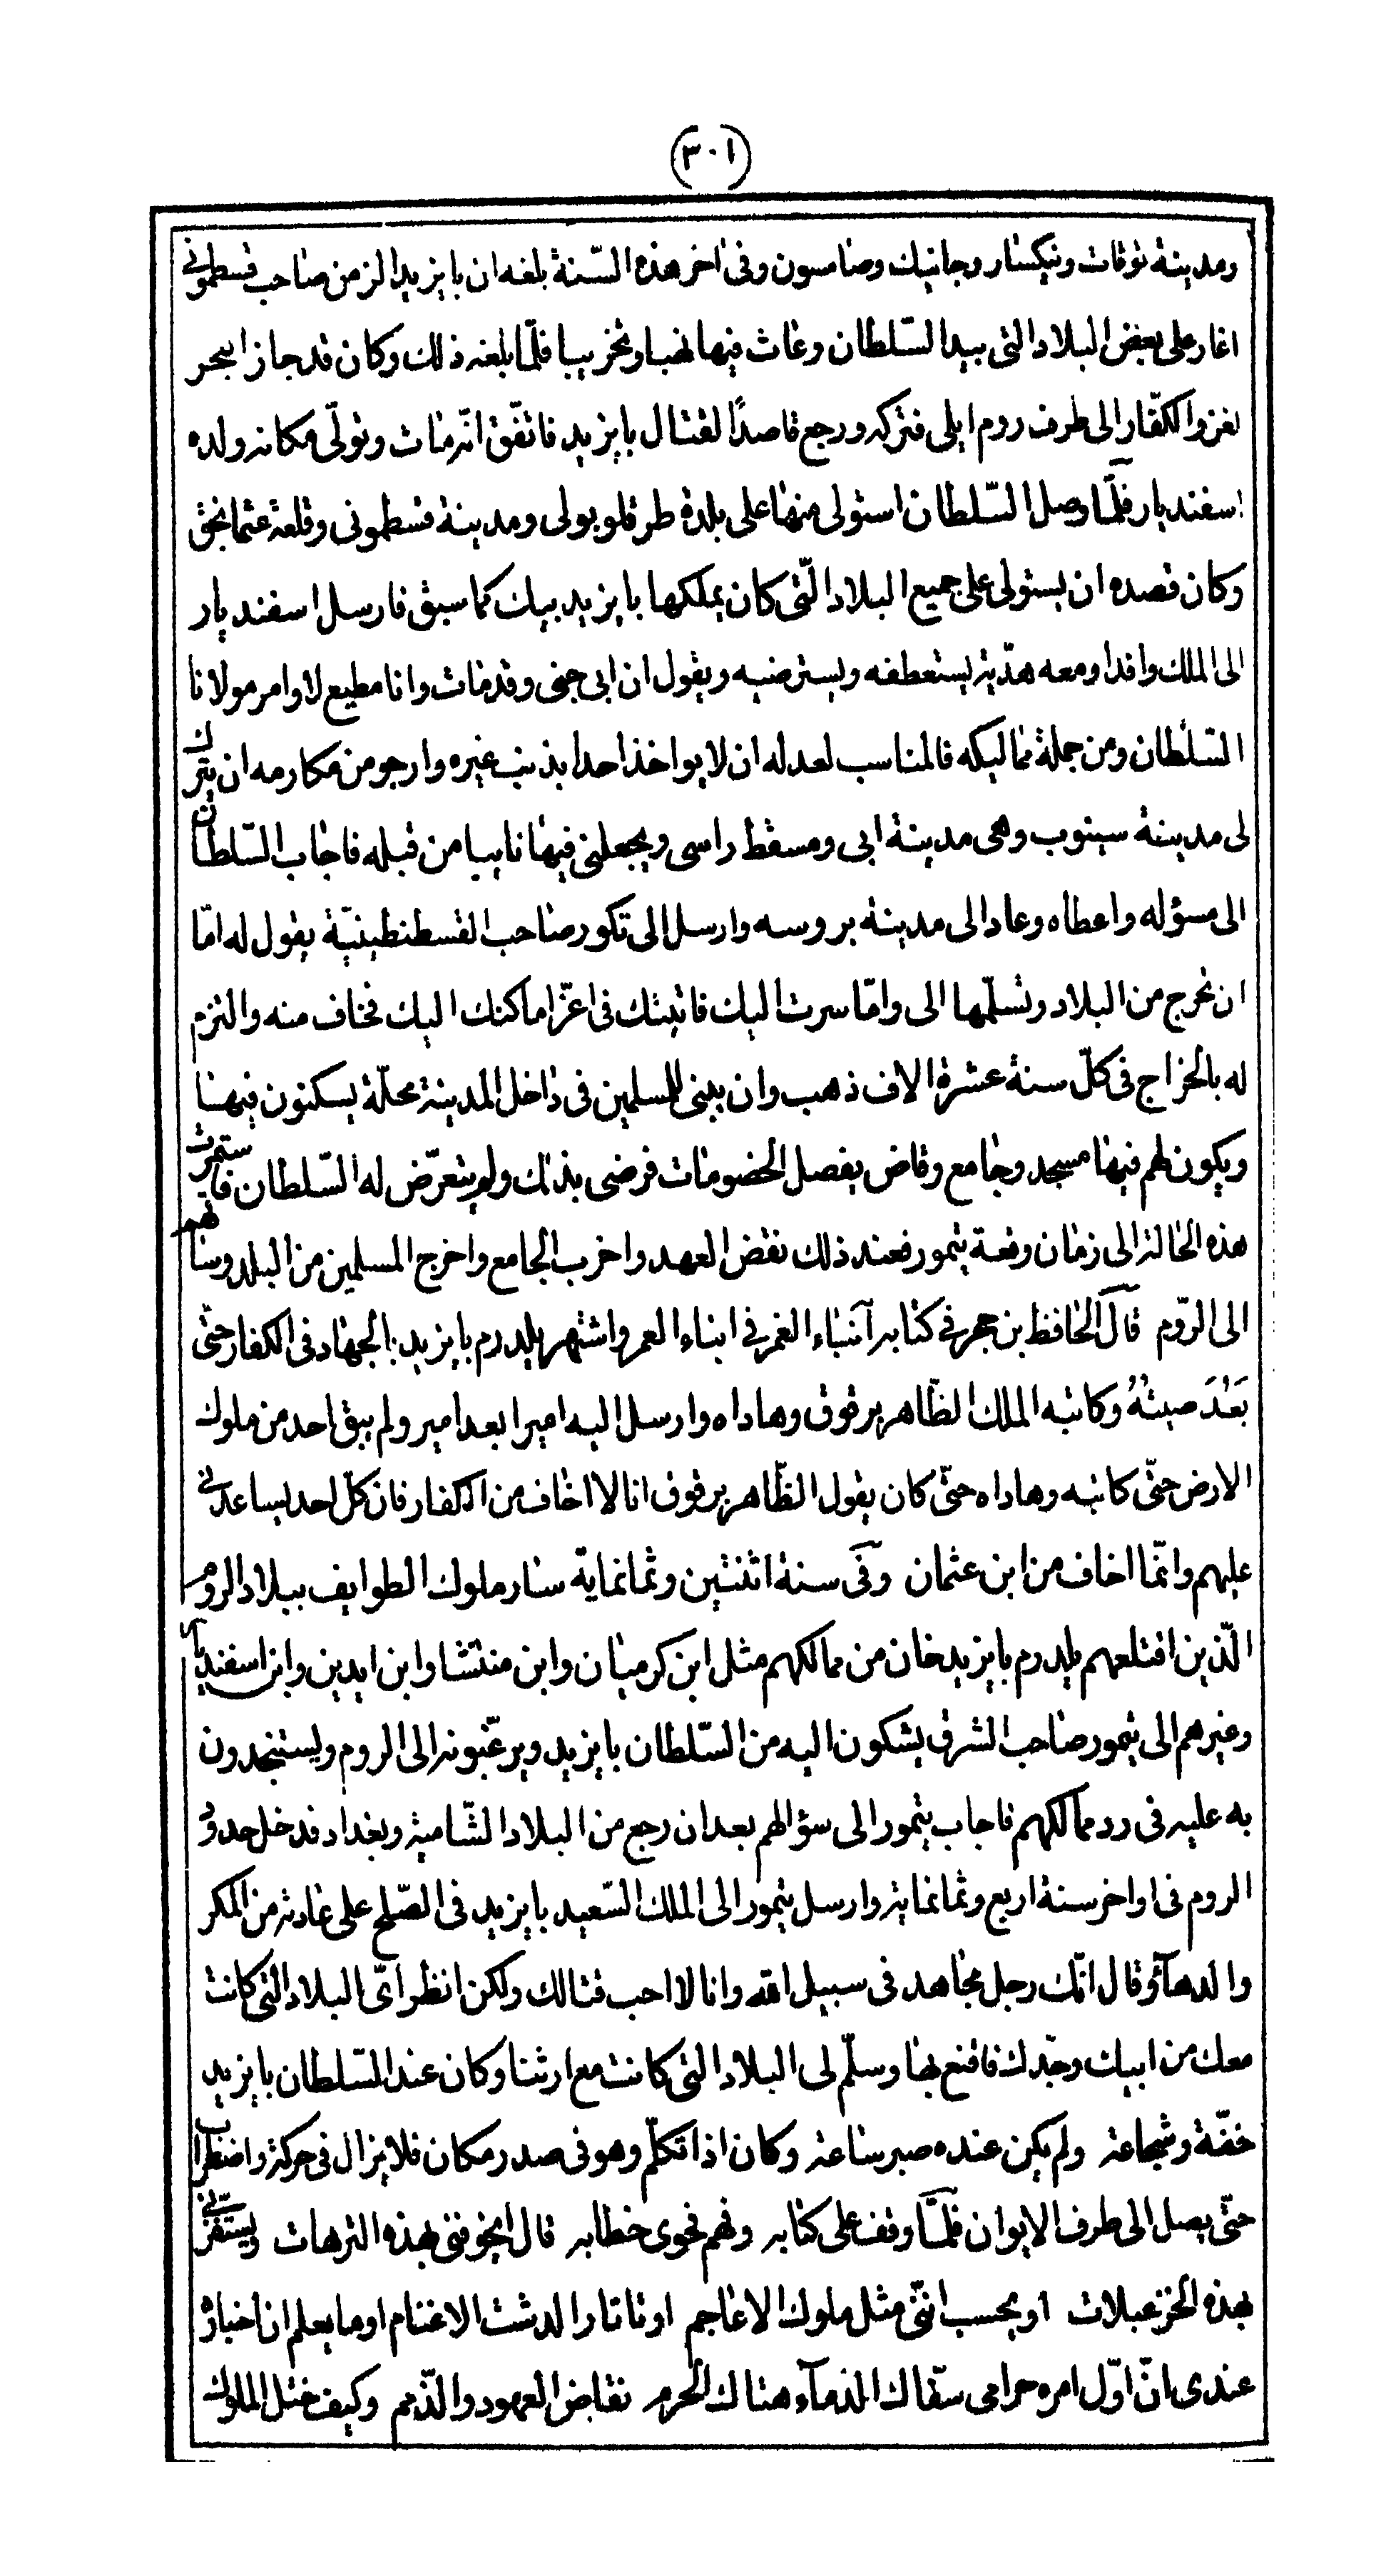 (٣٠١)
ومدينة توقات ونيكسار وجانيك وصامسون وفى اخر هذه السّنة بلغه ان بايزيد الزمن صاحب قسطمونى
اغار على بعض البلاد التى بيد السّلطان وعاث فيها نهبا وتخريبا فلمّا بلغه ذلك وكان قد جاز البحر
لغزو الكفّار الى طرف روم ايلى فتركه ورجع قاصدًا لقتال بايزيد فاتفّق انّه مات وتولّى مكانه ولده
اسفنديار فلمّا وصل السّلطان استولى منها على بلدة طرقلوبولى ومدينة قسطمونى وقلعة عثمانجق
وكان قصده ان يستولى على جميع البلاد الّتى كان يملكها بايزيد بيك كما سبق فارسل اسفنديار
الى الملك وافدا ومعه هدّية يستعطفه ويسترضيه ويقول ان ابى جنى وقد مات وانا مطيع لاوامر مولانا
السّلطان ومن جملة مماليكه فالمناسب لعدله ان لا يواخذ احدا بذنب غيره وارجو من مكارمه ان يترك
لى مدينة سينوب وهى مدينة ابى ومسقط راسى ويجعلنى فيها نايبا من قبله فاجاب السّلطان
الى مسؤله واعطاه وعاد الى مدينة بروسه وارسل الى تكور صاحب القسطنطينيّة يقول له امّا
ان تخرج من البلاد وتسلّمها الى وامّا سرت اليك فاتيتك فى اعّز اماكنك اليك فخاف منه والتزم
له بالخراج فى كلّ سنة عشرة الاف ذهب وان يبنى للمسلمين فى داخل المدينة محلّة يسكنون فيها
ويكون لهم فيها مسجد وجامع وقاض يفصل الخصومات فرضى بذلك ولم يتعرّض له السّلطان فاستمرت
هذه الحالة الى زمان وقعة تيمور فعند ذلك نقض العهد واخرب الجامع واخرج المسلمين من البلد وساقهم
الى الرّوم قال الحافظ بن حجر فى كتابه آنباء الغمر فى ابناء العمر واشتهر يلدرم بايزيد بالجهاد فى الكفار حتّى
بَعُدَ صيتُهُ وكاتبه الملك الظّاهر برقوق وهاداه وارسل اليه اميرا بعد امير ولم يبق احد من ملوك
الارض حتّى كاتبه وهاداه حتّى كان يقول الظّاهر برقوق انا لا اخاف من الكفار فان كلّ احد يساعدنى
عليهم وانّما اخاف من ابن عثمان وفى سنة اثنتين وثمانماية سار ملوك الطوايف ببلاد الروم
الّذين اقتلعهم يلدرم بايزيد خان من ممالكهم مثل ابن كرميان وابن منتشا وابن ايدين وابن اسفنديار
وغيرهم الى تيمور صاحب الشرق يشكون اليه من السّلطان بايزيد ويرغّبونه الى الروم ويستنجدون
به عليه فى رد ممالكهم فاجاب تيمور الى سؤالهم بعد ان رجع من البلاد الشّامية وبغداد فدخل حدود
الروم فى اواخر سنة اربع وثمانماية وارسل تيمور الى الملك السّعيد بايزيد فى الصّلح على عادته من المكر
والدهآء وقال انّك رجل مجاهد فى سبيل الله وانا لا احب قتالك ولكن انظر اىّ البلاد التى كانت
معك من ابيك وجدّك فاقنع بها وسلّم لى البلاد التى كانت مع ارثنا وكان عند السّلطان بايزيد
خفّة وشجاعة ولم يكن عنده صبر ساعة وكان اذا تكلّم وهو فى صدر مكان فلا يزال فى حركة واضطراب
حتّى يصل الى طرف الايوان فلمّا وقف على كتابه وفهم فحوى خطابه قال ايخوفنى بهذه الترهات ويستفزّنى
بهذه الخزعبلات او يحسب انّنى مثل ملوك الاعاجم او تاتار الدشت الاغتام او ما يعلم ان اخباره
عندى انّ اوّل امره حرامى سفّاك الدماء هتاك الحرم نقاض العهود والذّمم وكيف ختل الملوك